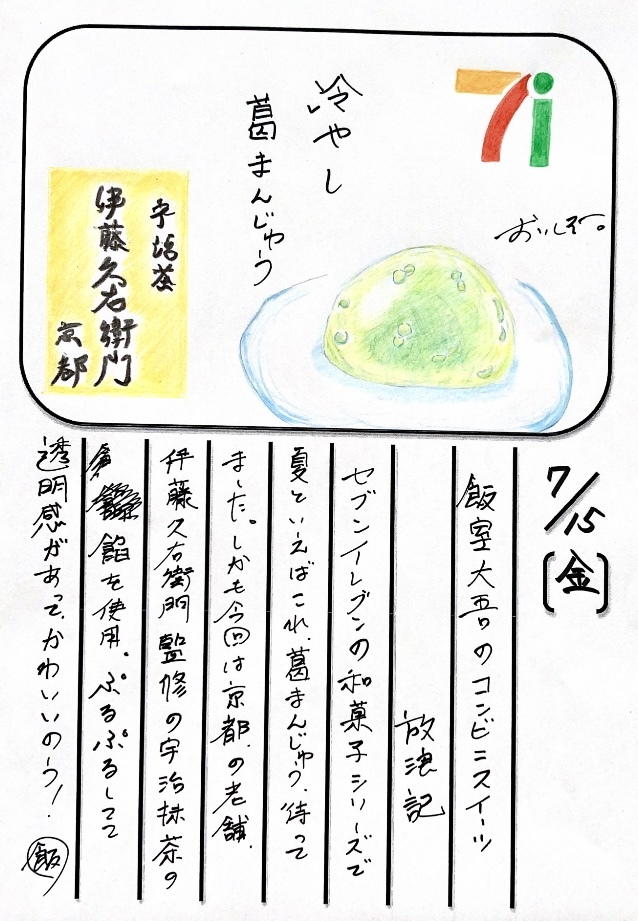 7i
冷やし
葛まんじゅう
おいしそー。
宇治茶
伊藤久右衛門
京都
7/15(金)
飯室大吾のコンビニスイーツ
放浪記
セブンイレブンの和菓子シリーズで
夏といえばこれ、葛まんじゅう、待って
ました。しかも今回は京都の老舗、
伊藤久右衛門監修の宇治抹茶の
餡を使用。ぷるぷるしてて
透明感があって、かわいいのう!
飯